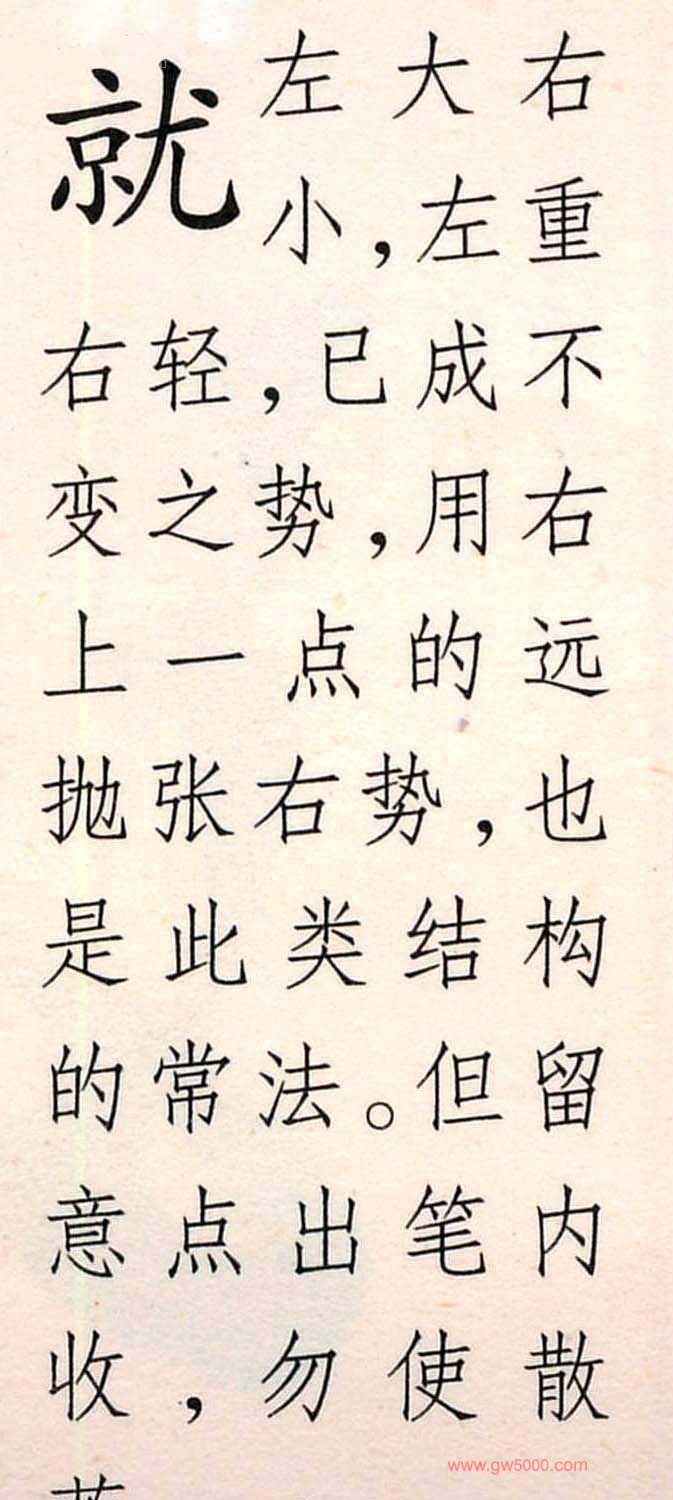 就 左大右
小，左重
右轻，已成不
变之势，用右
上一点的远
抛张右势，也
是此类结构
的常法。但留
意点出笔内
收，勿使散
www.gw5000.com